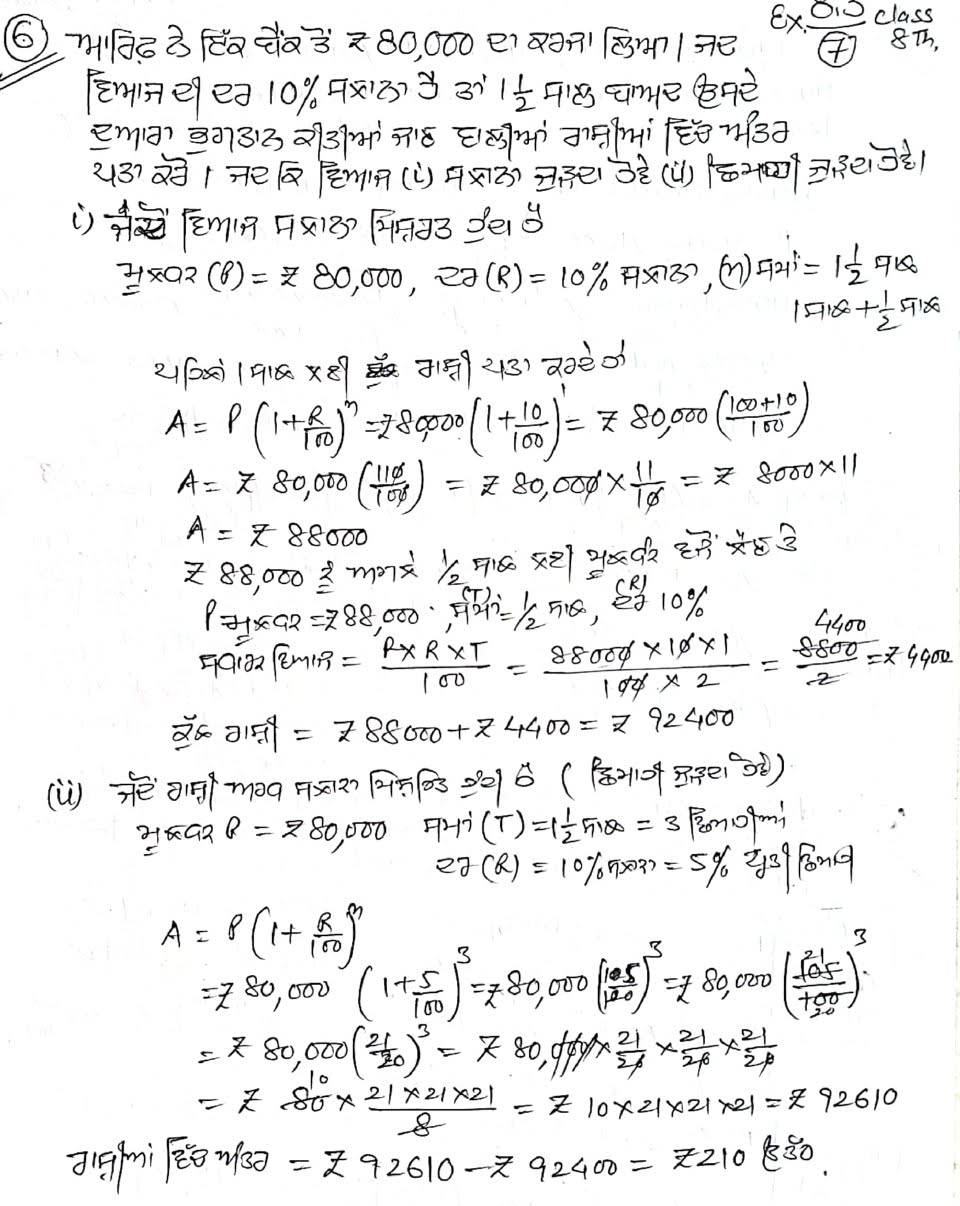 Ex. class
⑦ 8th.
⑥ ਆਰਿਫ਼ ਨੇ ਇੱਕ ਬੈਂਕ ਤੋਂ ₹ 80,000 ਦਾ ਕਰਜਾ ਲਿਆ। ਜਦ
ਵਿਆਜ ਦੀ ਦਰ 10% ਸਲਾਨਾ ਹੈ ਤਾਂ 1 1/2 ਸਾਲ ਬਾਅਦ ਉਸਦੇ
ਦੁਆਰਾ ਭੁਗਤਾਨ ਕੀਤੀਆਂ ਜਾਣ ਵਾਲੀਆਂ ਰਾਸ਼ੀਆਂ ਵਿੱਚ ਅੰਤਰ
ਪਤਾ ਕਰੋ। ਜਦ ਕਿ ਵਿਆਜ (i) ਸਲਾਨਾ ਜੁੜਦਾ ਹੋਵੇ (ii) ਛਿਮਾਹੀ ਜੁੜਦਾ ਹੋਵੇ।
i) ਵਿਆਜ ਸਲਾਨਾ ਮਿਸ਼ਰਤ ਹੁੰਦਾ ਹੈ
ਮੂਲਧਨ (P) = ₹ 80,000, ਦਰ (R) = 10% ਸਲਾਨਾ, (n) ਸਮਾਂ = 1 1/2 ਸਾਲ
1 ਸਾਲ + 1/2 ਸਾਲ
ਪਹਿਲਾਂ 1 ਸਾਲ ਲਈ ਰਾਸ਼ੀ ਪਤਾ ਕਰਦੇ ਹਾਂ
A = P (1 + R/100)^n = ₹ 80,000 (1 + 10/100)^1 = ₹ 80,000 (100+10/100)
A = ₹ 80,000 (110/100) = ₹ 80,000 × 11/10 = ₹ 8000 × 11
A = ₹ 88000
₹ 88,000 ਨੂੰ ਅਗਲੇ 1/2 ਸਾਲ ਲਈ ਮੂਲਧਨ ਵਜੋਂ ਲੈਣ ਤੇ
P ਮੂਲਧਨ = ₹ 88,000, (T) ਸਮਾਂ = 1/2 ਸਾਲ, (R) ਦਰ 10%
ਸਧਾਰਨ ਵਿਆਜ = P × R × T/100 = 88000 × 10 × 1/100 × 2 = 4400 8800/2 = ₹ 4400
ਕੁੱਲ ਰਾਸ਼ੀ = ₹ 88000 + ₹ 4400 = ₹ 92400
(ii) ਜਦੋਂ ਰਾਸ਼ੀ ਅਰਧ ਸਲਾਨਾ ਮਿਸ਼ਰਿਤ ਹੁੰਦੀ ਹੈ (ਛਿਮਾਹੀ ਜੁੜਦਾ ਹੋਵੇ)
ਮੂਲਧਨ P = ₹ 80,000 ਸਮਾਂ (T) = 1 1/2 ਸਾਲ = 3 ਛਿਮਾਹੀਆਂ
ਦਰ (R) = 10% ਸਲਾਨਾ = 5% ਪ੍ਰਤੀ ਛਿਮਾਹੀ
A = P (1 + R/100)^n
= ₹ 80,000 (1 + 5/100)^3 = ₹ 80,000 (105/100)^3 = ₹ 80,000 (21 105/100 20)^3
= ₹ 80,000 (21/20)^3 = ₹ 80,000 × 21/20 × 21/20 × 21/20
= ₹ 10 80 × 21 × 21 × 21/8 = ₹ 10 × 21 × 21 × 21 = ₹ 92610
ਰਾਸ਼ੀਆਂ ਵਿੱਚ ਅੰਤਰ = ₹ 92610 – ₹ 92400 = ₹ 210 ਉੱਤਰ.